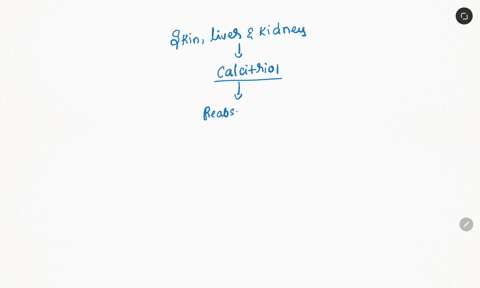 Skin, liver & kidney
↓
Calcitriol
↓
Reabs.